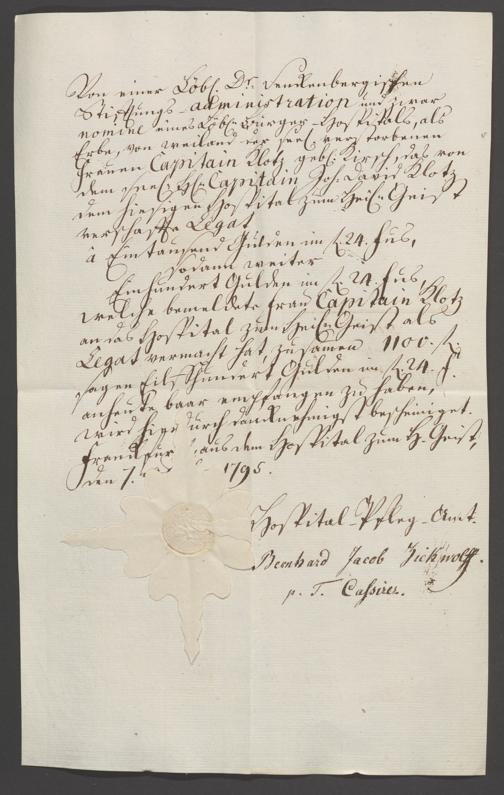 Von einer Löbl. Dr. Senckenbergischen
Stiftungs-administration und zwar
nomine eines Löbl. Bürger-Hospitals, als
Erbe, von weiland der seel. verstorbenen
Frauen Capitain Klotz geb. Kirsch, das von
dem Capitain Joh. David Klotz
dem hiesigen Hospital zum Heil. Geist
verschaffte Legat
à Eintausend Gulden im f 24. fus,
sodann weiter
Einhundert Gulden im f 24. fus,
welche bemeldete Frau Capitain Klotz
an das Hospital zum Heil. Geist als
Legat vermacht hat, zusamen 1100. f.
sagen Eilfhundert Gulden im f 24. f.
anheute baar empfangen zu haben,
wird hierdurch danknehmigst bescheiniget.
Frankfurt aus dem Hospital zum H. Geist,
den 7. 1795.
Hospital-Pfleg-Amt.
Bernhard Jacob Zickwolff.
p. T. Cassirer.